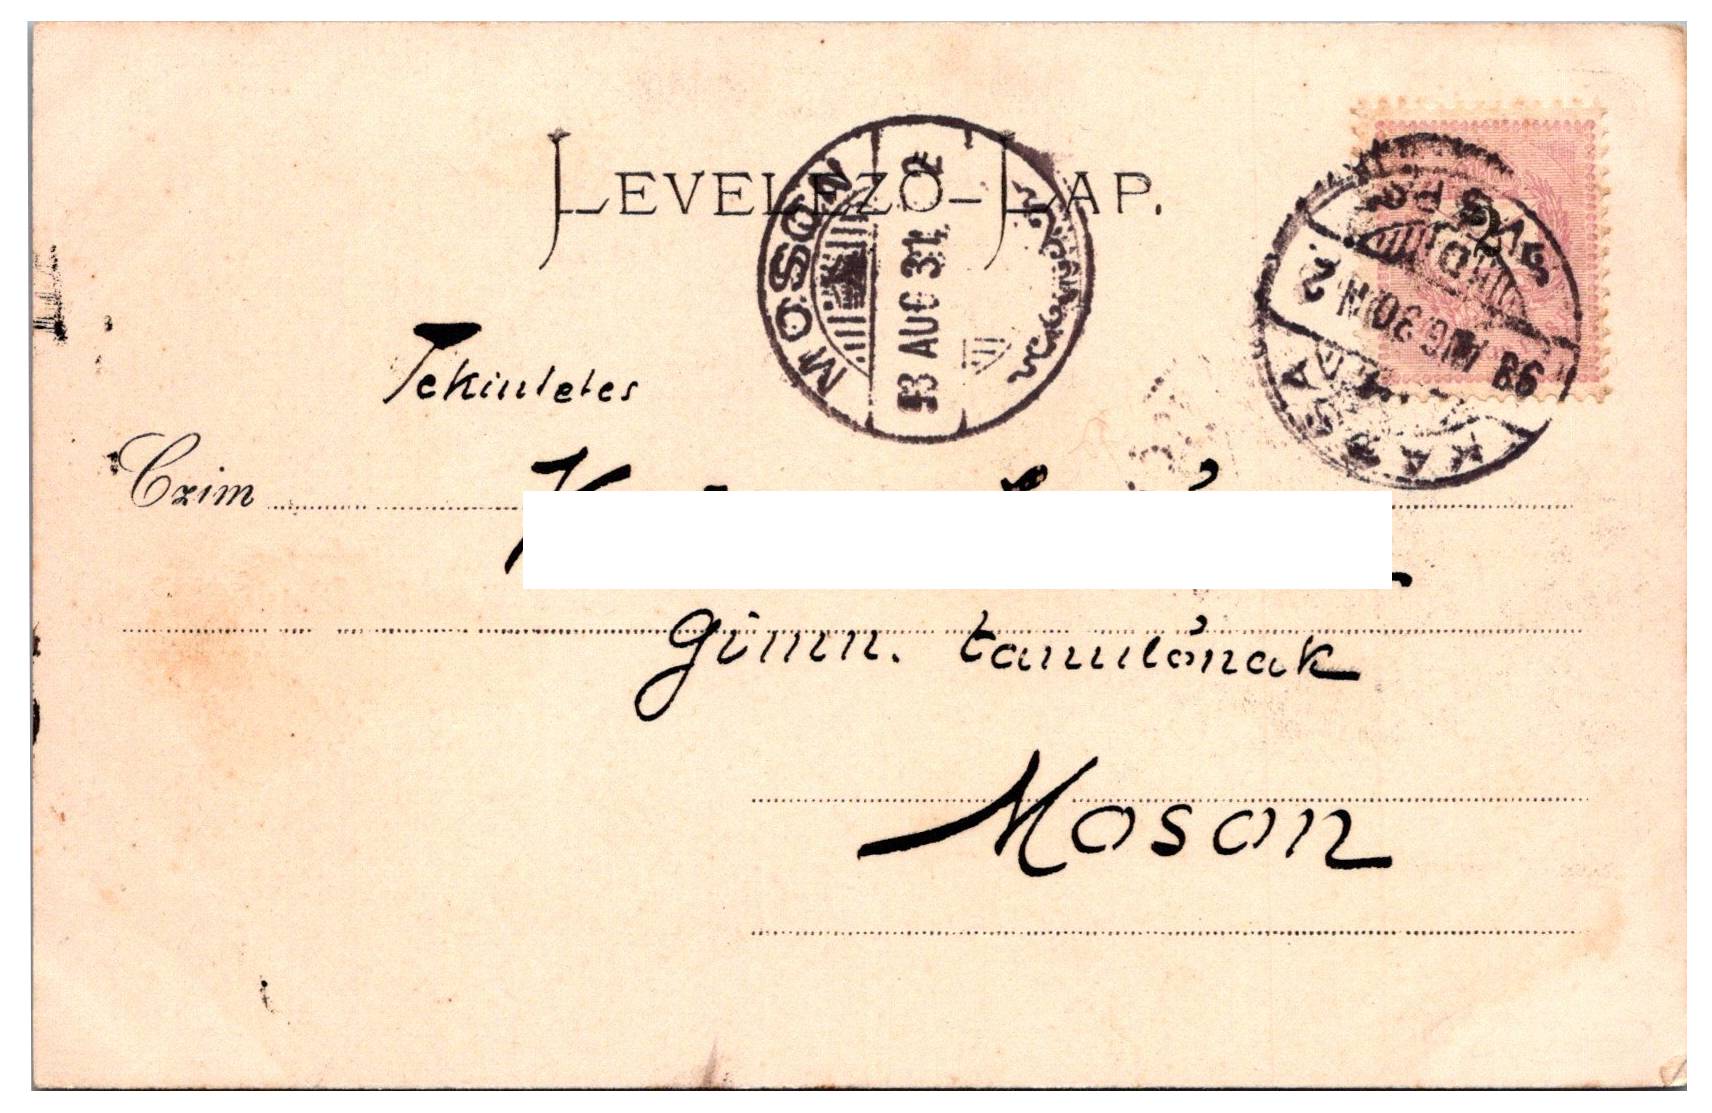 LEVELEZŐ-LAP.
MOSON
98 AUG 31
KASSA
98 AUG 30
Tekintetes
Czim
gimn. tanulónak
Moson